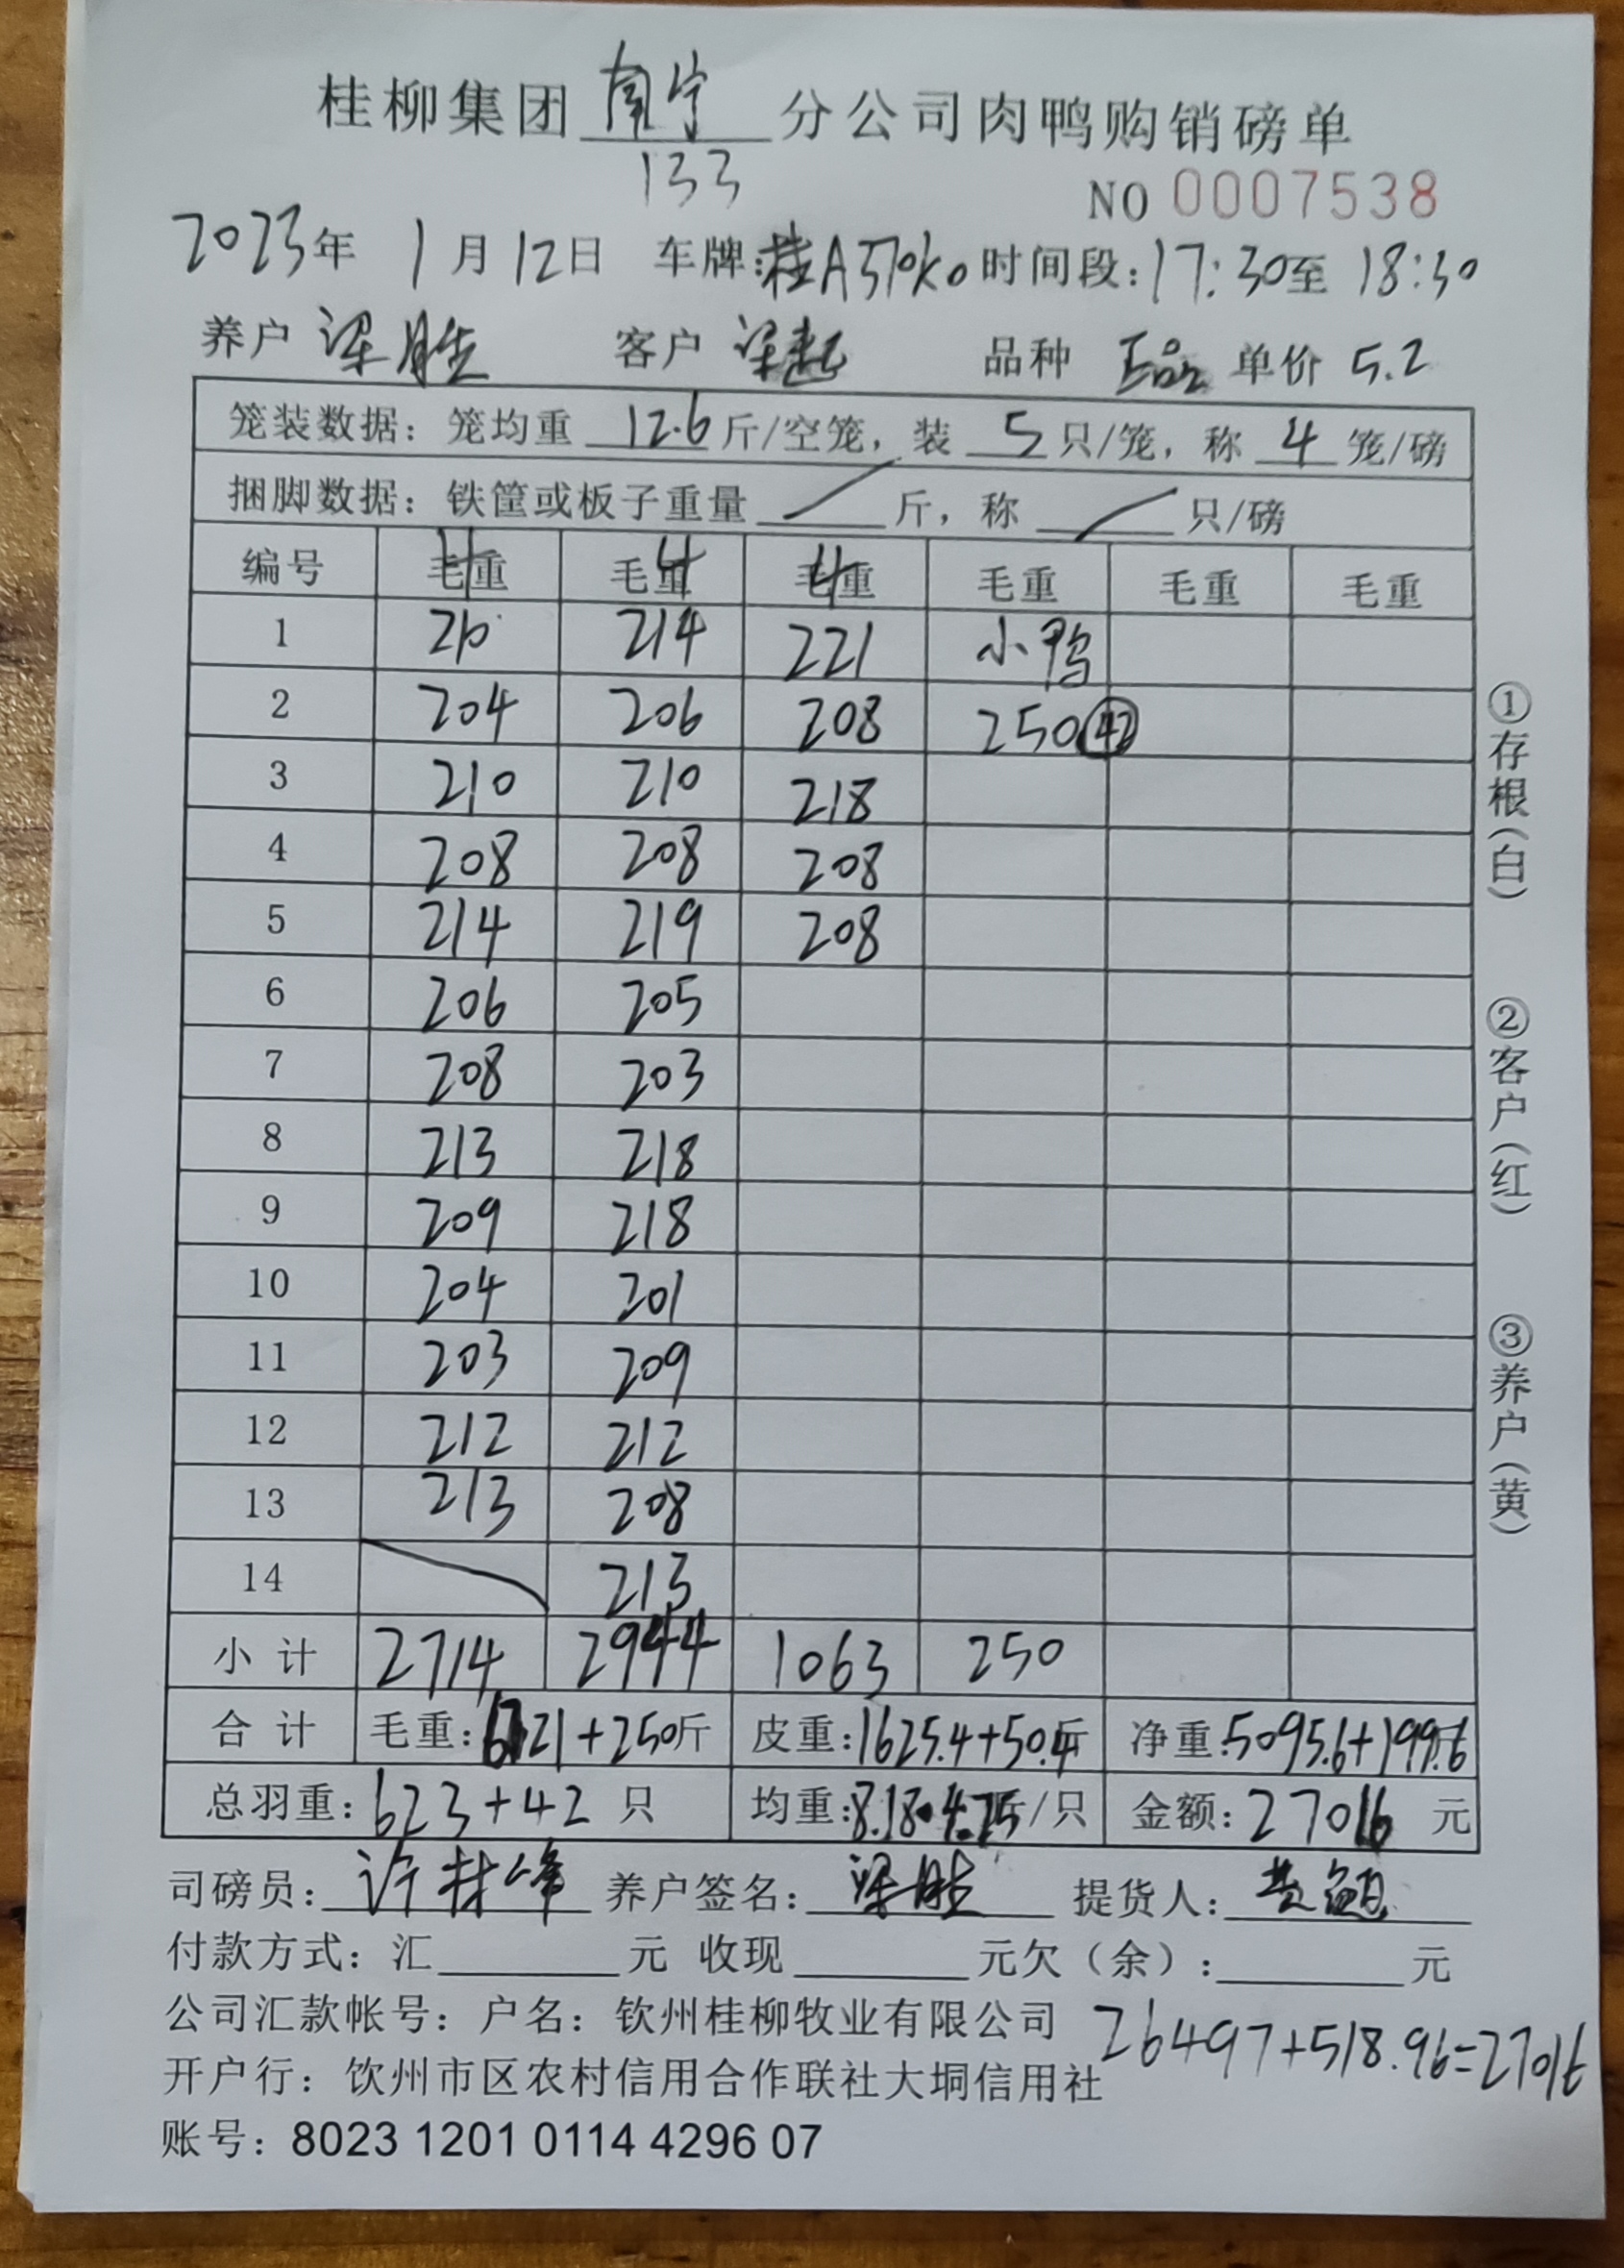 桂柳集团南宁分公司肉鸭购销磅单
133
NO 0007538
2023年 1月12日 车牌:桂A370k0 时间段:17:30至 18:30
养户 梁胜 客户 梁 品种 单价 5.2
笼装数据:笼均重 12.6 斤/空笼,装 5 只/笼,称 4 笼/磅
捆脚数据:铁筐或板子重量 斤,称 只/磅
编号 毛重 4 毛重 4 毛重 4 毛重 毛重 毛重
1 210 214 221 小鸭
2 204 206 208 250 42
3 210 210 218
4 208 208 208
5 214 219 208
6 206 205
7 208 203
8 213 218
9 209 218
10 204 201
11 203 209
12 212 212
13 213 208
14 213
小计 2714 2944 1063 250
合计 毛重:6721+250斤 皮重:1625.4+50.4斤 净重:5095.6+199.6
总羽重:623+42 只 均重:8.18 4.75/只 金额:27016 元
司磅员: 许林峰 养户签名: 梁胜 提货人: 黄
付款方式:汇 元 收现 元欠(余): 元
公司汇款帐号:户名:钦州桂柳牧业有限公司
26497+518.96=27016
开户行:钦州市区农村信用合作联社大垌信用社
账号:8023 1201 0114 4296 07
①存根(白)
②客户(红)
③养户(黄)